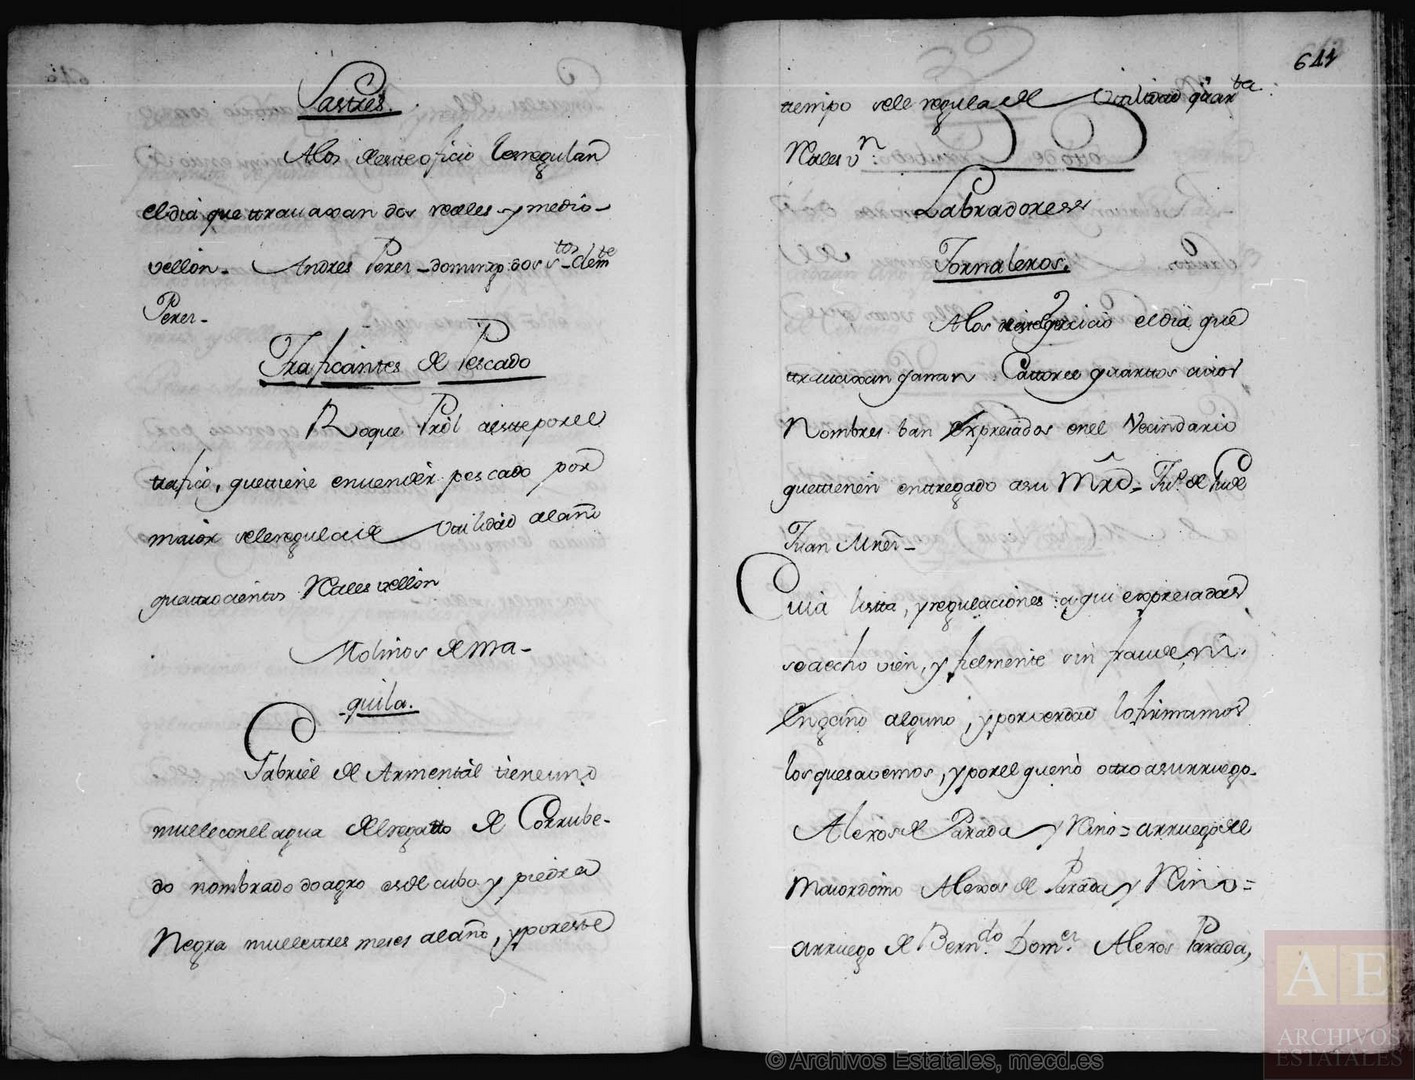 Sastres.
Alos deeste oficio lesregulan
eldia que travaxan dos reales y medio
vellon. Andres Perez domingo dos stos Clemte
Perez
Traficantes de Pescado
Roque Prol aestepor el
trafico, quettiene envender pescado por
maior seleregula de Utilidad alaño
quattrocientos Reales vellon
Molinos de Ma-
quila.
Gabriel de Armental tieneuno
muele con el agua delregatto de Corrube-
do nombrado do agro es de cubo y piedra
Negra muele tres meses alaño, y poreste
641
tiempo sele regula de Utilidad quarta
Reales vn.
Labradores
Jornaleros.
Alos deeste exercicio eldia que
travaxan ganan Cattorce quartos cuios
Nombres ban Expresados enel Vecindario
quettienen entregado asu Mrd. Ju.º de Pude
Juan Mner
Cuia listta, y regulaciones aqui expresadas
seaecho vien, y fielmente sin fraude, ni
Engaño alguno, y por verdad lo firmamos
los quesavemos, y porel queno otro asurruego
Alexos de Parada y Nino = arruego del
Maiordomo Alexos de Parada y Nino =
arruego de Berndo. Domez. Alexos Parada,
AE
ARCHIVOS
ESTATALES
© Archivos Estatales, mecd.es